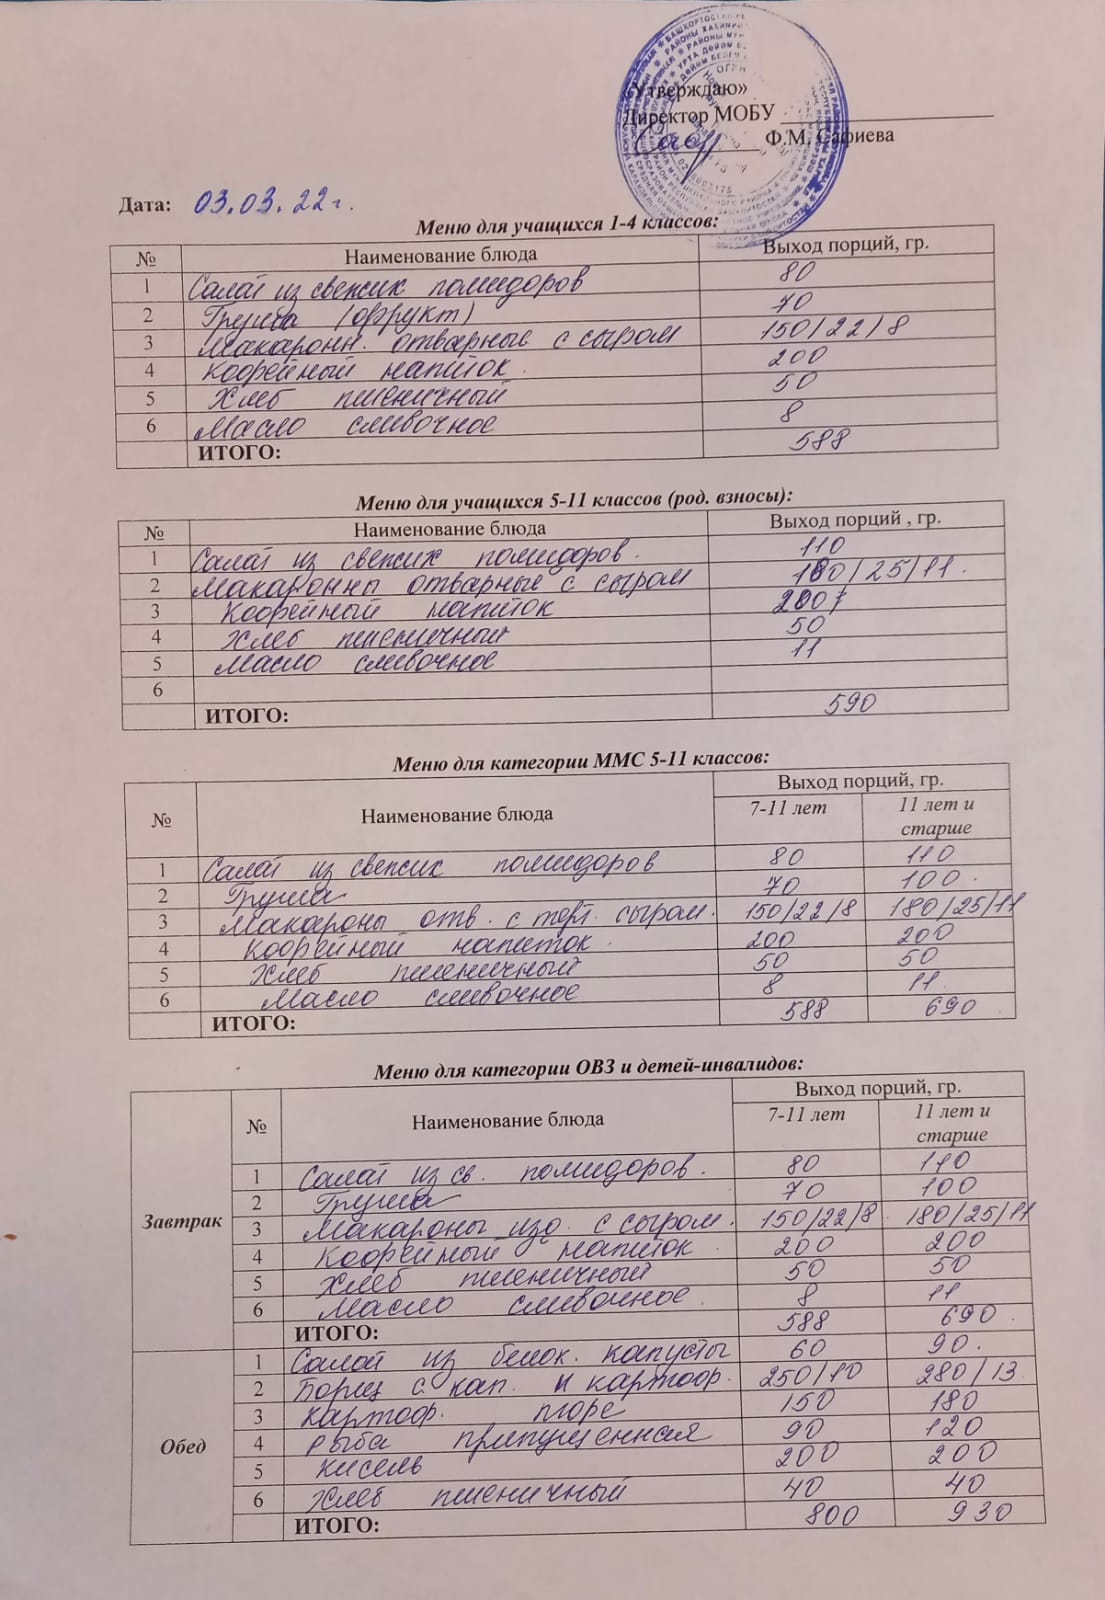 «Утверждаю»
Директор МОБУ
Ф.М. Сафиева
Дата: 03.03.22г.
Меню для учащихся 1-4 классов:
№ Наименование блюда Выход порций, гр.
1 Салат из свежих помидоров 80
2 Груша (фрукт) 70
3 Макаронн. отварные с сыром 150/22/8
4 Кофейный напиток. 200
5 Хлеб пшеничный 50
6 Масло сливочное 8
ИТОГО: 588
Меню для учащихся 5-11 классов (род. взносы):
№ Наименование блюда Выход порций , гр.
1 Салат из свежих помидоров. 110
2 Макаронны отварные с сыром 180/25/11.
3 Кофейный напиток 200
4 Хлеб пшеничный 50
5 Масло сливочное 11
6
ИТОГО: 590
Меню для категории ММС 5-11 классов:
№ Наименование блюда Выход порций, гр.
7-11 лет 11 лет и
старше
1 Салат из свежих помидоров 80 110
2 Груша 70 100.
3 Макароны отв. с терт. сыром. 150/22/8 180/25/11
4 Кофейный напиток. 200 200
5 Хлеб пшеничный 50 50
6 Масло сливочное 8 11.
ИТОГО: 588 690
Меню для категории ОВЗ и детей-инвалидов:
№ Наименование блюда Выход порций, гр.
7-11 лет 11 лет и
старше
Завтрак
1 Салат из св. помидоров. 80 110
2 Груша 70 100
3 Макароны изд. с сыром. 150/22/8 180/25/11
4 Кофейный напиток 200 200
5 Хлеб пшеничный 50 50
6 Масло сливочное. 8 11
ИТОГО: 588 690.
Обед
1 Салат из белок. капусты 60 90.
2 Борщ с кап. и картоф. 250/10 280/13
3 Картоф. пюре 150 180
4 Рыба припущенная 90 120
5 Кисель 200 200
6 Хлеб пшеничный 40 40
ИТОГО: 800 930